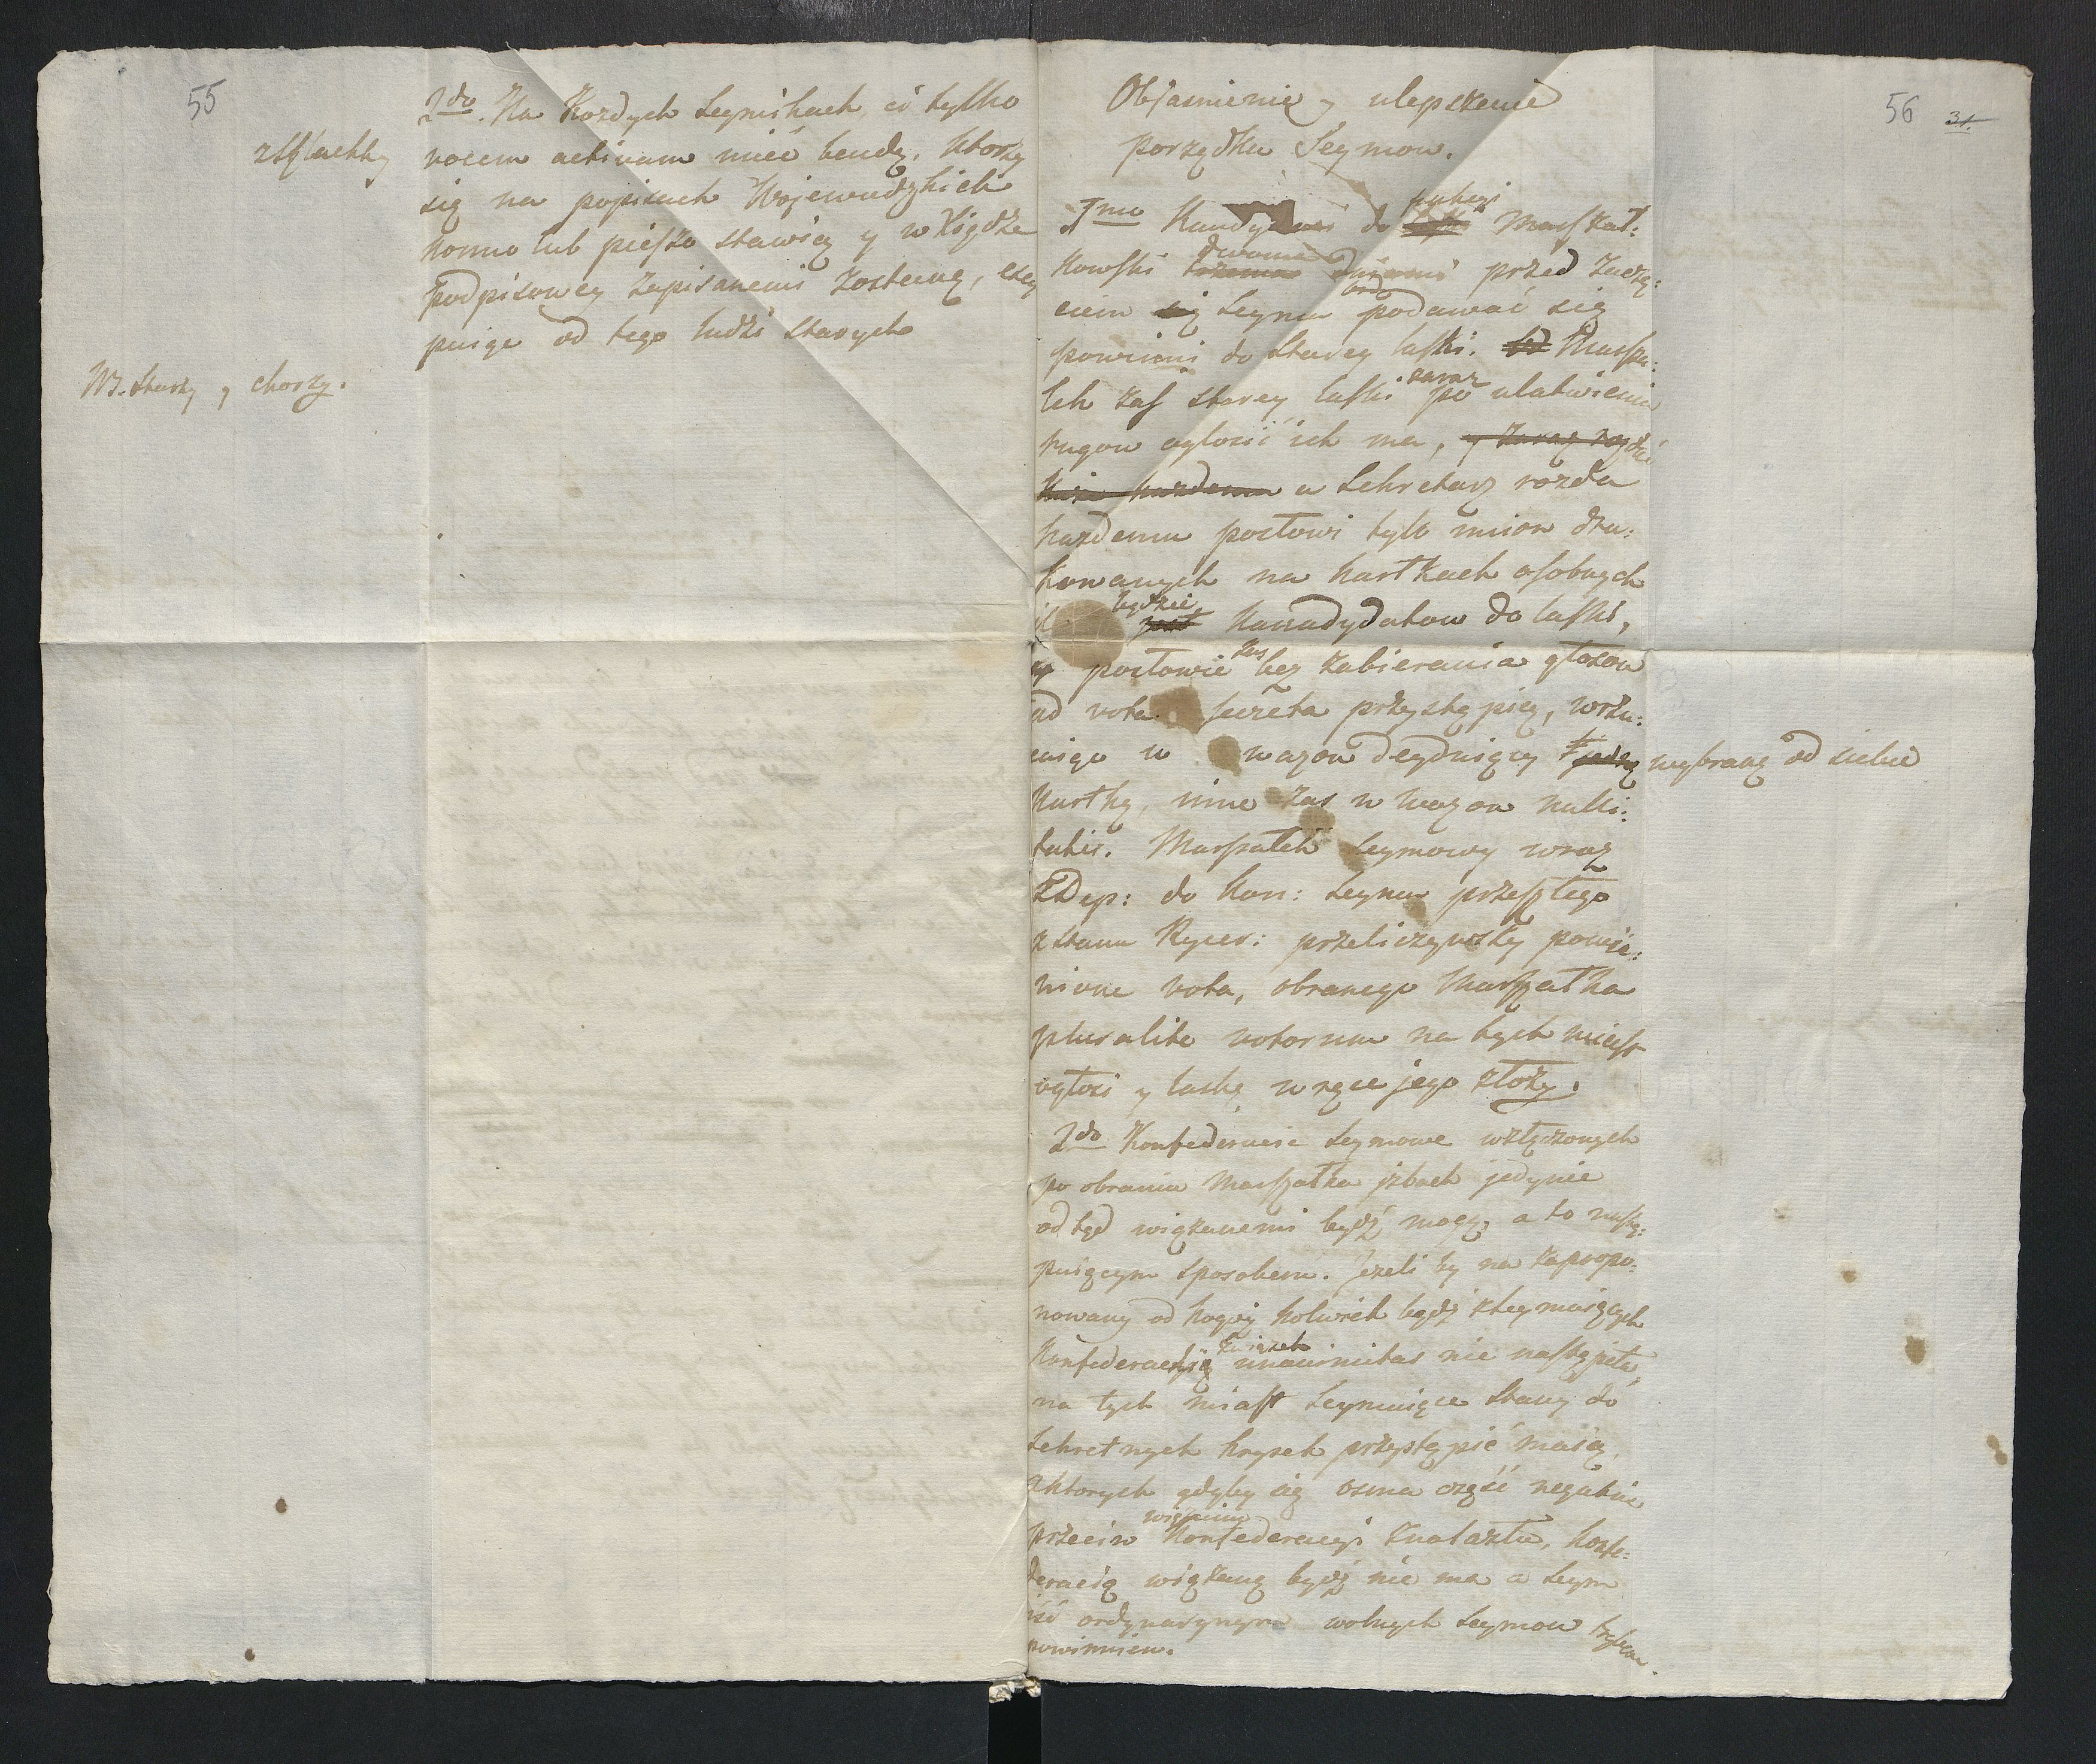 55
2do. Na Kozdych Seymikach ci tylko
z Szlachty
vocem activam mieć bendą, ktorzy
się na popisach Wojewudzkich
konno lub pieszo stawią y w Xiędze
podpisowey zapisanemi zostaną, excy
puiąc od tego ludzi starych
NB. starzy y chorzy.
56 31.
Objasnienie y ulepszenie
porządku Seymow.
1mo Kandydaci do laski Marszał:
kowski dwoma dniami przed zaczę:
ciem się Seymu podawać się
powinni do starey laski. Marsza:
łek zaś starey laski zaraz po ulatwieniu
rugow ogłosić ich ma, y zaraz rozdać
każdemu a Sekretarz rozda
każdemu posłowi tylo imion dru:
kowanych na kartkach osobnych
będzie jest Kanadydatow do laski,
posłowie zas bez zabierania głosow
ad vota secreta przystąpią, wrzu:
caiąc w wazon decyduiący jedną wybraną od siebie
kartkę, inne zas w wazon nulli:
tatis. Marszałek Seymowy wraz
z Dep: do Kon: Seymu przeszłego
z stanu Rycer: przeliczywszy pomie:
nione vota, obranego Marszałka
pluralite votorum na tych miast
ogłosi y laskę w ręce jego złoży.
2do Konfederacie Seymowe w złączonych
po obraniu Marszałka jzbach jedynie
od tąd wiązanemi bydź mogą, a to nastę:
puiącym sposobem. Jezeli by na zapropo:
nowany od kogoż kolwiek bądź z Seymuiących
Konfederacyi związek unanimitas nie nastąpiła,
na tych miast Seymuiące Stany do
sekretnych kresek przystąpić maią,
z ktorych gdyby się osma część negative
przeciw wiązaniu Konfederacyi znalazła, Konfe:
deracią wiązaną bydź nie ma a Seym
iść ordynaryinym wolnych Seymow trybem
powinnien.